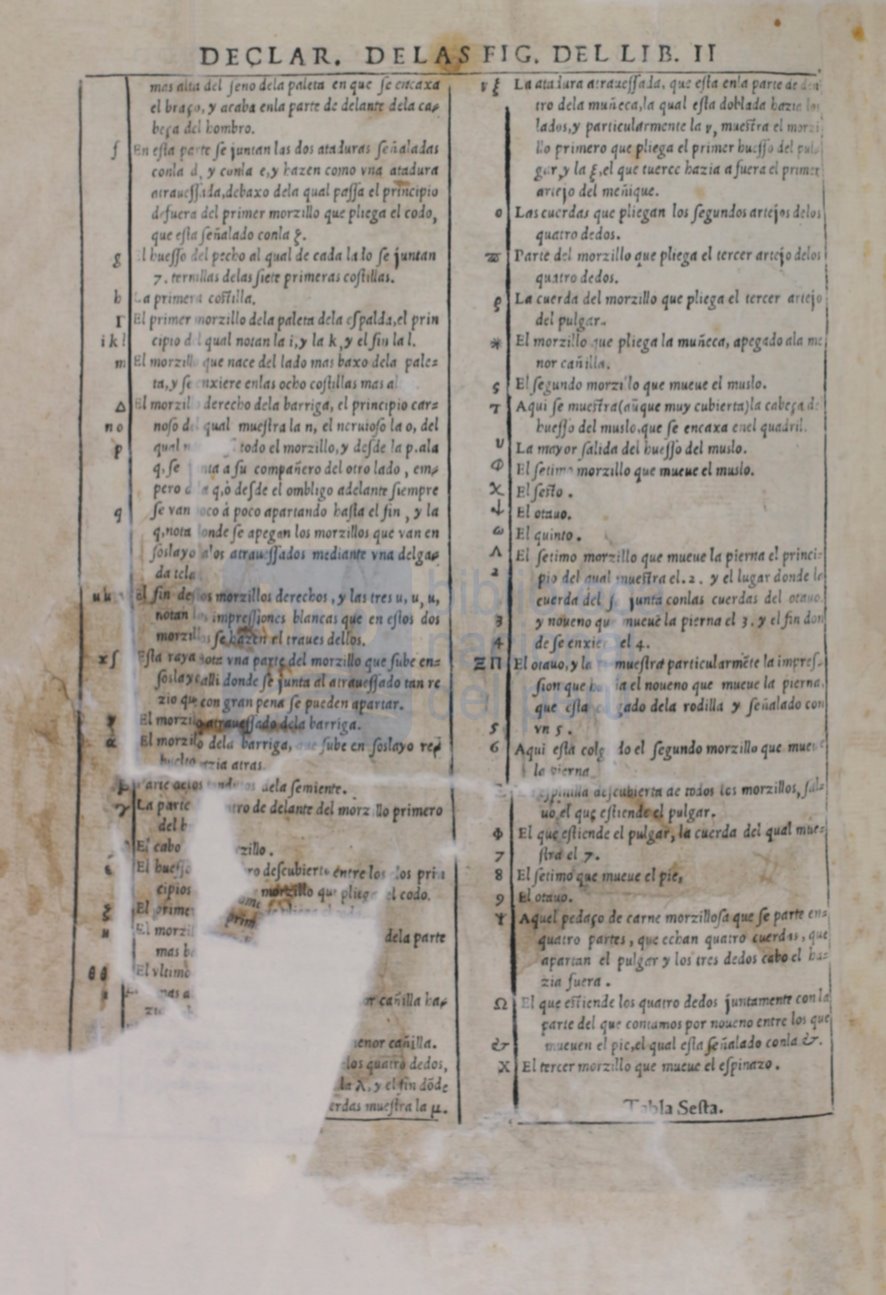 DECLAR. DELAS FIG. DEL LIB. II
mas alta del ſeno dela paleta en que ſe encaxa
el braço, y acaba enla parte de delante dela ca-
beça del hombro.
ſ En eſta parte ſe juntan las dos ataduras ſeñaladas
conla d, y conla e, y hazen como vna atadura
atraueſſada, debaxo dela qual paſſa el principio
defuera del primer morzillo que pliega el codo,
que eſta ſeñalado conla ξ.
g El hueſſo del pecho al qual de cada lado ſe juntan
7. ternillas delas ſiete primeras coſtillas.
h La primera coſtilla.
Γ El primer morzillo dela paleta dela eſpalda, el prin
i k l cipio del qual notan la i, y la k, y el fin la l.
m El morzillo que nace del lado mas baxo dela pale-
ta, y ſe enxiere enlas ocho coſtillas mas al
Δ El morzillo derecho dela barriga, el principio car-
n o noſo del qual mueſtra la n, el neruioſo la o, del
p qual todo el morzillo, y deſde la p. ala
q, ſe a ſu compañero del otro lado, em-
pero q, ò deſde el ombligo adelante ſiempre
q ſe van poco à poco apartando haſta el fin, y la
q, nota donde ſe apegan los morzillos que van en
ſoslayo alos atraueſſados mediante vna delga-
da tela
u u El fin delos morzillos derechos, y las tres u, u, u,
notan las impreſſiones blancas que en eſtos dos
morzillos ſe hazen el traues dellos.
x ſ Eſta raya nota vna parte del morzillo que ſube en-
ſoslayo alli donde ſe junta al atraueſſado tan re
zio que con gran pena ſe pueden apartar.
y El morzillo atraueſſado dela barriga.
α El morzillo dela barriga, que ſube en ſoslayo re-
buelto azia atras.
parte delos dela ſemiente.
γ La parte de delante del morzillo primero
del
El cabo zillo.
ε El hueſſo deſcubierto entre los dos prin
cipios morzillo que pliega el codo.
ξ El prime
prim
κ El morzil dela parte
mas b
θ θ El vltimo
mas a r cañilla ha-
zia
enor cañilla.
los quatro dedos,
la λ, y el fin dõde
erdas mueſtra la μ.
ν ξ La atadura atraueſſada, que eſta enla parte de den
tro dela muñeca, la qual eſta doblada hazia los
lados, y particularmente la ν, mueſtra el morzi
llo primero que pliega el primer hueſſo del pul-
gar, y la ξ, el que tuerce hazia a fuera el primer
artejo del meñique.
o Las cuerdas que pliegan los ſegundos artejos delos
quatro dedos.
ϖ Parte del morzillo que pliega el tercer artejo delos
quatro dedos.
ϱ La cuerda del morzillo que pliega el tercer artejo
del pulgar.
* El morzillo que pliega la muñeca, apegado ala me
nor cañilla.
ς El ſegundo morzillo que mueue el muslo.
τ Aqui ſe mueſtra (aũque muy cubierta) la cabeça del
hueſſo del muslo, que ſe encaxa enel quadril.
υ La mayor ſalida del hueſſo del muslo.
Φ El ſetimo morzillo que mueue el muslo.
χ El ſeſto.
ψ El otauo.
ω El quinto.
Λ El ſetimo morzillo que mueue la pierna el princi-
2 pio del qual mueſtra el. 2. y el lugar donde la
cuerda del ſ. junta conlas cuerdas del otauo.
3 y noueno que mueue la pierna el 3. y el fin don
4 de ſe enxiere el 4.
Ξ Π El otauo, y la mueſtra particularmẽte la impreſ-
ſion que haze el noueno que mueue la pierna,
que eſta colgado dela rodilla y ſeñalado con
5 vn 5.
6 Aqui eſta colgado el ſegundo morzillo que mueue
la pierna
eſpinilla deſcubierta de todos los morzillos, ſal-
uo, el que eſtiende el pulgar.
Φ El que eſtiende el pulgar, la cuerda del qual mue-
7 ſtra el 7.
8 El ſetimo que mueue el pie,
9 El otauo.
Ψ Aquel pedaço de carne morzilloſa que ſe parte en-
quatro partes, que echan quatro cuerdas, que
apartan el pulgar y los tres dedos cabo el ha-
zia fuera.
Ω El que eſtiende los quatro dedos juntamente con la
parte del que contamos por noueno entre los que
&amp; mueuen el pie, el qual eſta ſeñalado conla &amp;.
X El tercer morzillo que mueue el eſpinazo.
Tabla Seſta.